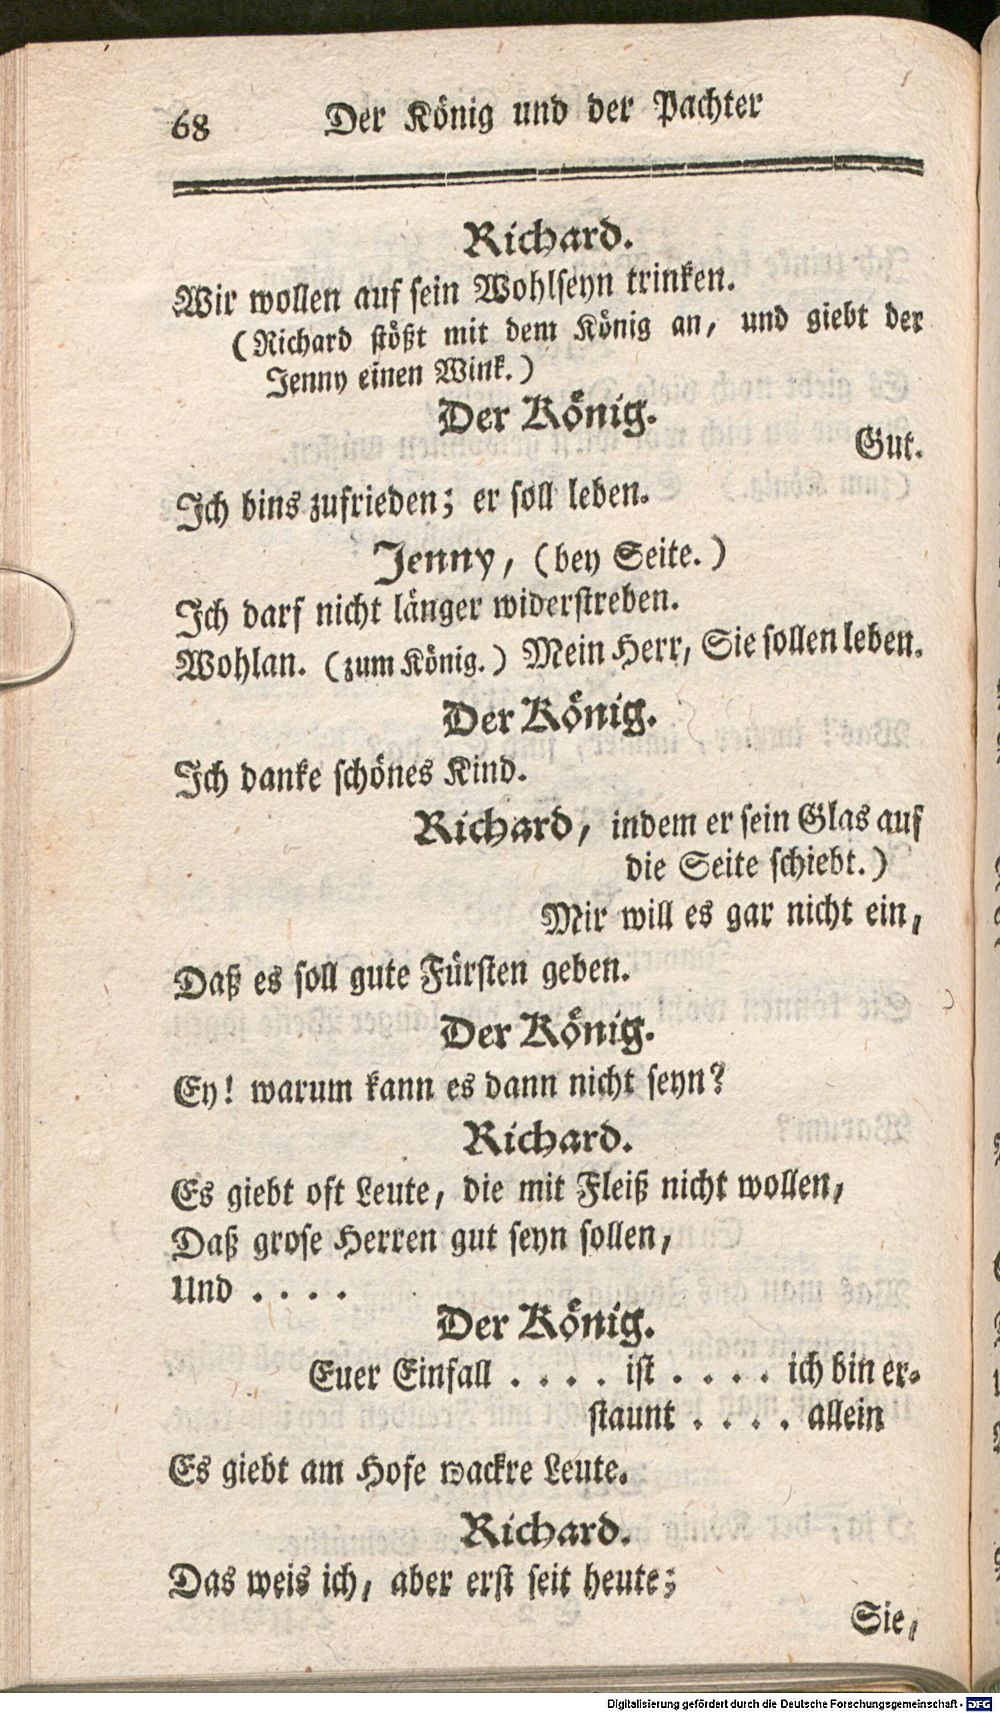 68 Der König und der Pachter
Richard.
Wir wollen auf sein Wohlseyn trinken.
(Richard stößt mit dem König an, und giebt der
Jenny einen Wink.)
Der König.
Gut.
Ich bins zufrieden; er soll leben.
Jenny, (bey Seite.)
Ich darf nicht länger widerstreben.
Wohlan. (zum König.) Mein Herr, Sie sollen leben.
Der König.
Ich danke schönes Kind.
Richard, indem er sein Glas auf
die Seite schiebt.)
Mir will es gar nicht ein,
Daß es soll gute Fürsten geben.
Der König.
Ey! warum kann es dann nicht seyn?
Richard.
Es giebt oft Leute, die mit Fleiß nicht wollen,
Daß grose Herren gut seyn sollen,
Und . . . .
Der König.
Euer Einfall . . . . ist . . . . ich bin er-
staunt . . . . allein
Es giebt am Hofe wackre Leute.
Richard.
Das weis ich, aber erst seit heute;
Sie,
Digitalisierung gefördert durch die Deutsche Forschungsgemeinschaft - DFG